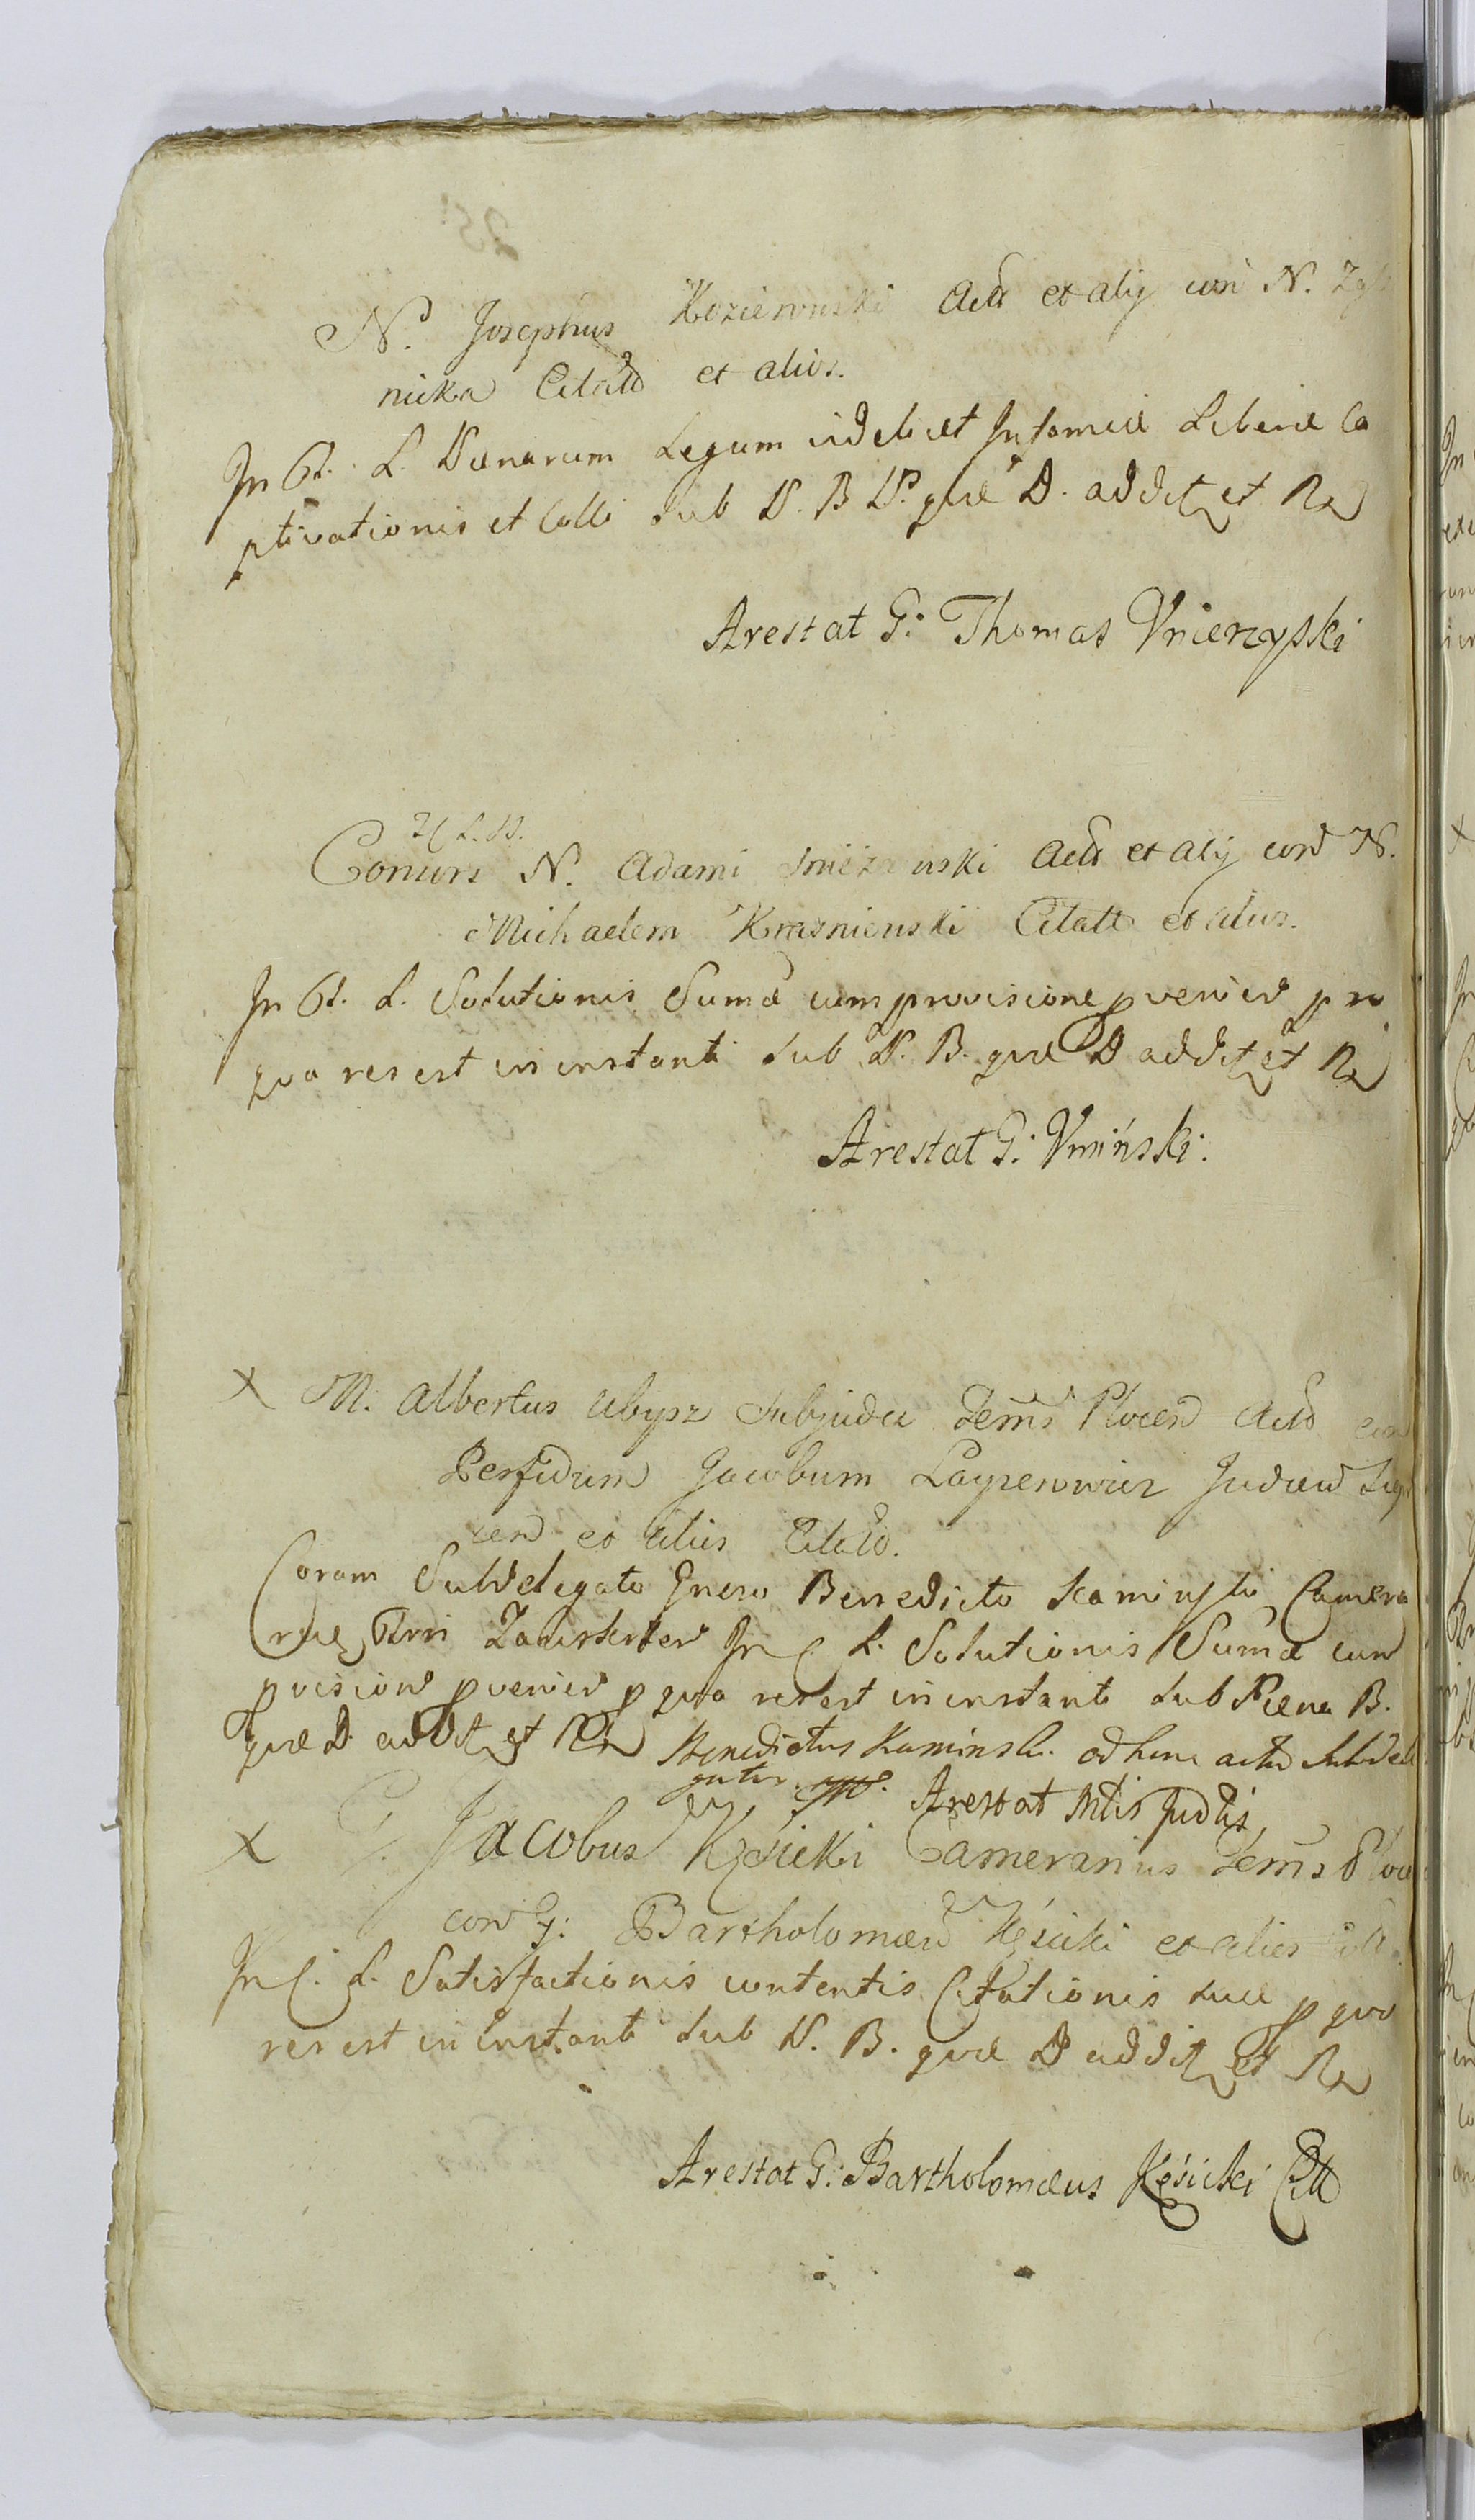 N. Josephus Koziewuski Actt et alij con N. Zgli
nicka Citatt et alios.
In Ct. L. Pænarum Legum videlicet Infamiæ Liberæ Ca
ptivationis et Colli sub P. B P. quæ D. additt et Rx
Arestat G: Thomas Vnierzyski
Conurs N. Adami Actt et alij con N.
Michaelem Krasnienski Citatt et alios.
In Ct. L. Solutionis Sumæ cum provisione pvenien pro
qua res est in instanti sub P. B. quæ D additt et Rx
Arestat G: Vmiński:
x M. Albertus Ubysz Subjudex Terris Plocen Actt con
Perfidum Jacobum Layzerowicz Judæum
et alios Citatt.
Coram Subdelegato Gneroso Benedicto Kaminski Camera
rio In C L. Solutionis Sumæ cum
pvision pvenien p qua res est in instanti sub Pæna B.
quæ D. additt et Rx Benedictus Kaminski. ad hunc actum Subdele
gatus. Arestat Mtis Judtis
x G. Jacobus Kęsicki Camerarius Terris Ploce
con G: Bartholomæum Kęsicki et alios
In C. L. Satisfactionis contentis Citationis suæ p quo
res est in instanti sub P. B. quæ D additt et Rx
Arestat G: Bartholomæus Kęsicki Citt